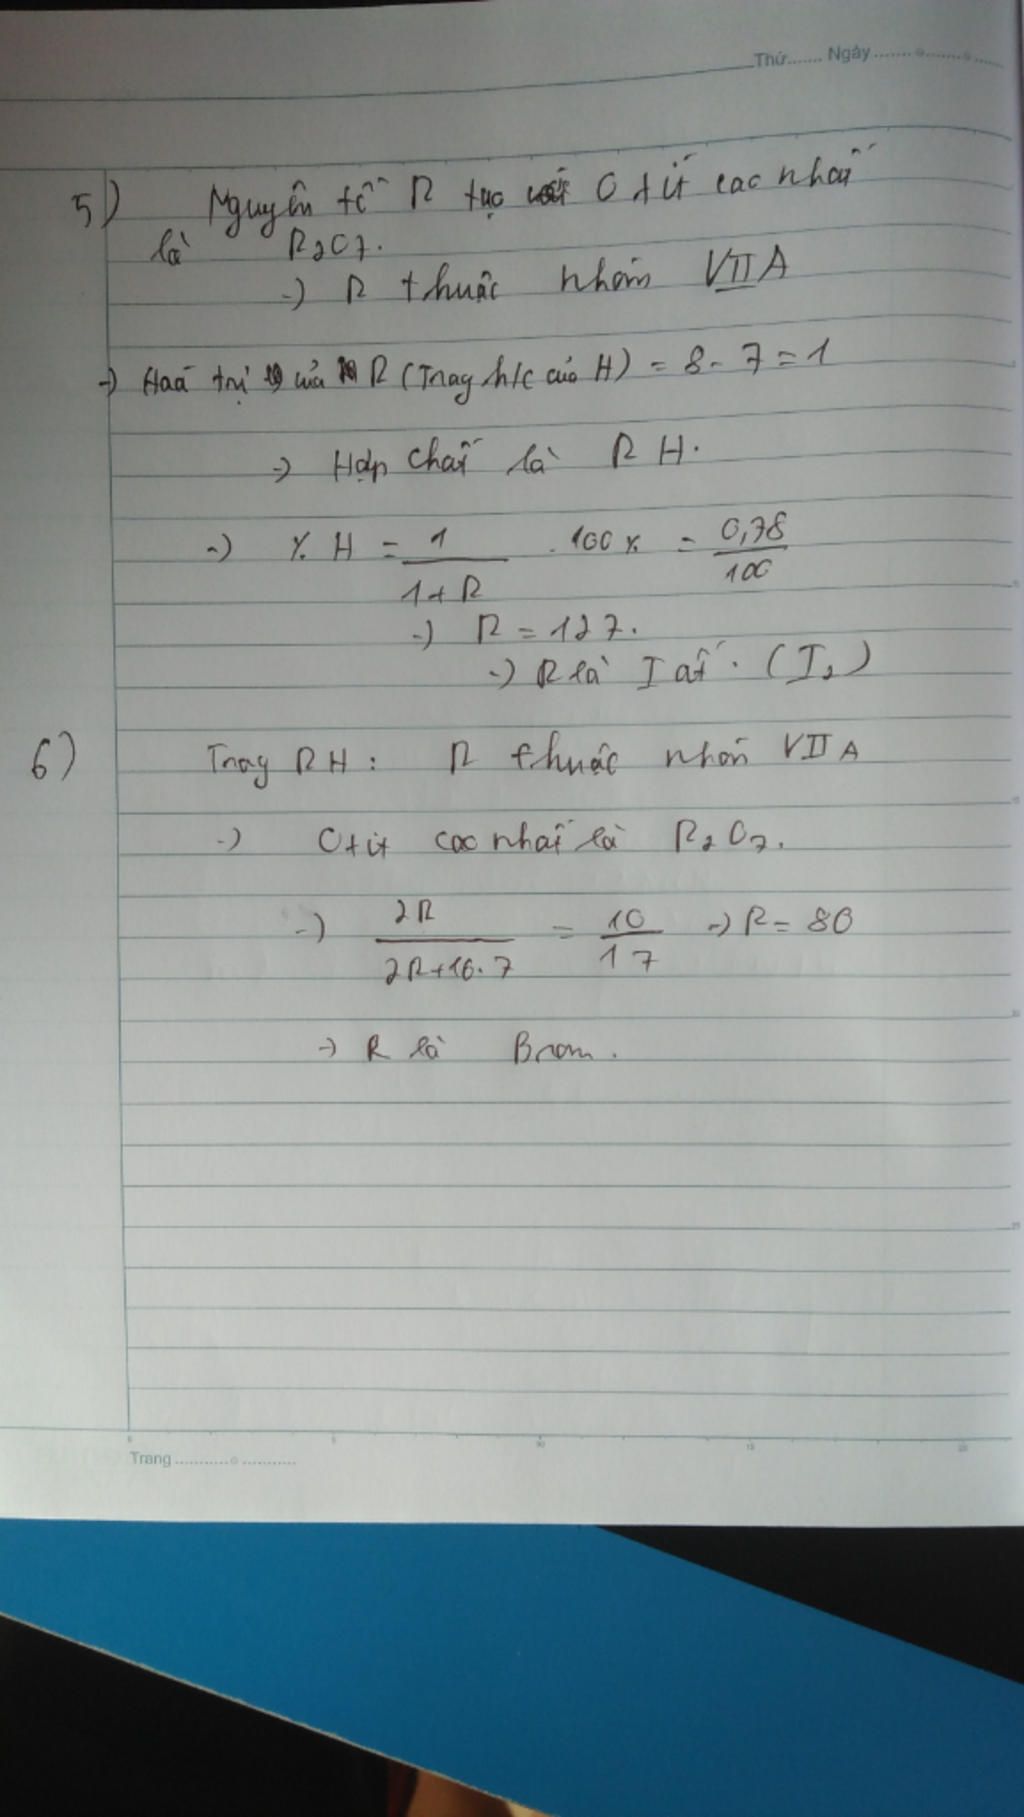 Thứ....... Ngày ........o........o......
5) Nguyên tố R tạo với Oxit cao nhất
là R2O7.
-> R thuộc nhóm VIIA
-> Hoá trị của R (Trong h/c của H) = 8 - 7 = 1
-> Hợp chất là RH.
-> % H = 1/(1+R) . 100% = 0,78/100
-> R = 127.
-> R là Iot. (I2)
6) Trong RH: R thuộc nhóm VIIA
-> Oxit cao nhất là R2O7.
-> 2R/(2R+16.7) = 10/17 -> R = 80
-> R là Brom.
Trang ...........o...........